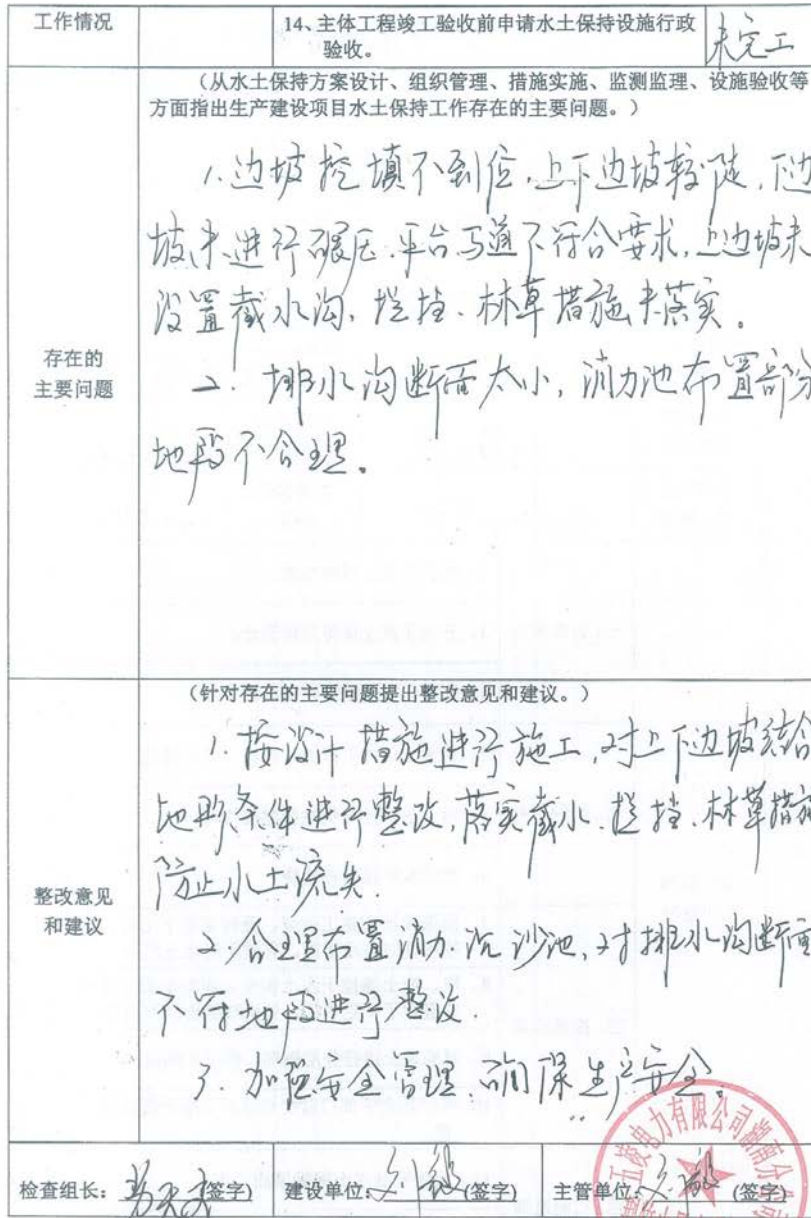 工作情况
14、主体工程竣工验收前申请水土保持设施行政
验收。
未完工
（从水土保持方案设计、组织管理、措施实施、监测监理、设施验收等
方面指出生产建设项目水土保持工作存在的主要问题。）
存在的
主要问题
1.边坡挖填不到位，上下边坡较陡，下边
坡未进行碾压.平台马道不符合要求，上边坡未
设置截水沟、拦挡、林草措施未落实。
2. 排水沟断面太小，消力池布置部分
地段不合理。
（针对存在的主要问题提出整改意见和建议。）
整改意见
和建议
1. 按设计措施进行施工，对上下边坡结合
地形条件进行整改，落实截水、拦挡、林草措施
防止水土流失
2. 合理布置消力.沉沙池，对排水沟断面
不符地段进行整改.
3. 加强安全管理.确保生产安全。
检查组长：
(签字)
建设单位：刘
(签字)
主管单位：刘
(签字)
五凌电力有限公司
分公司